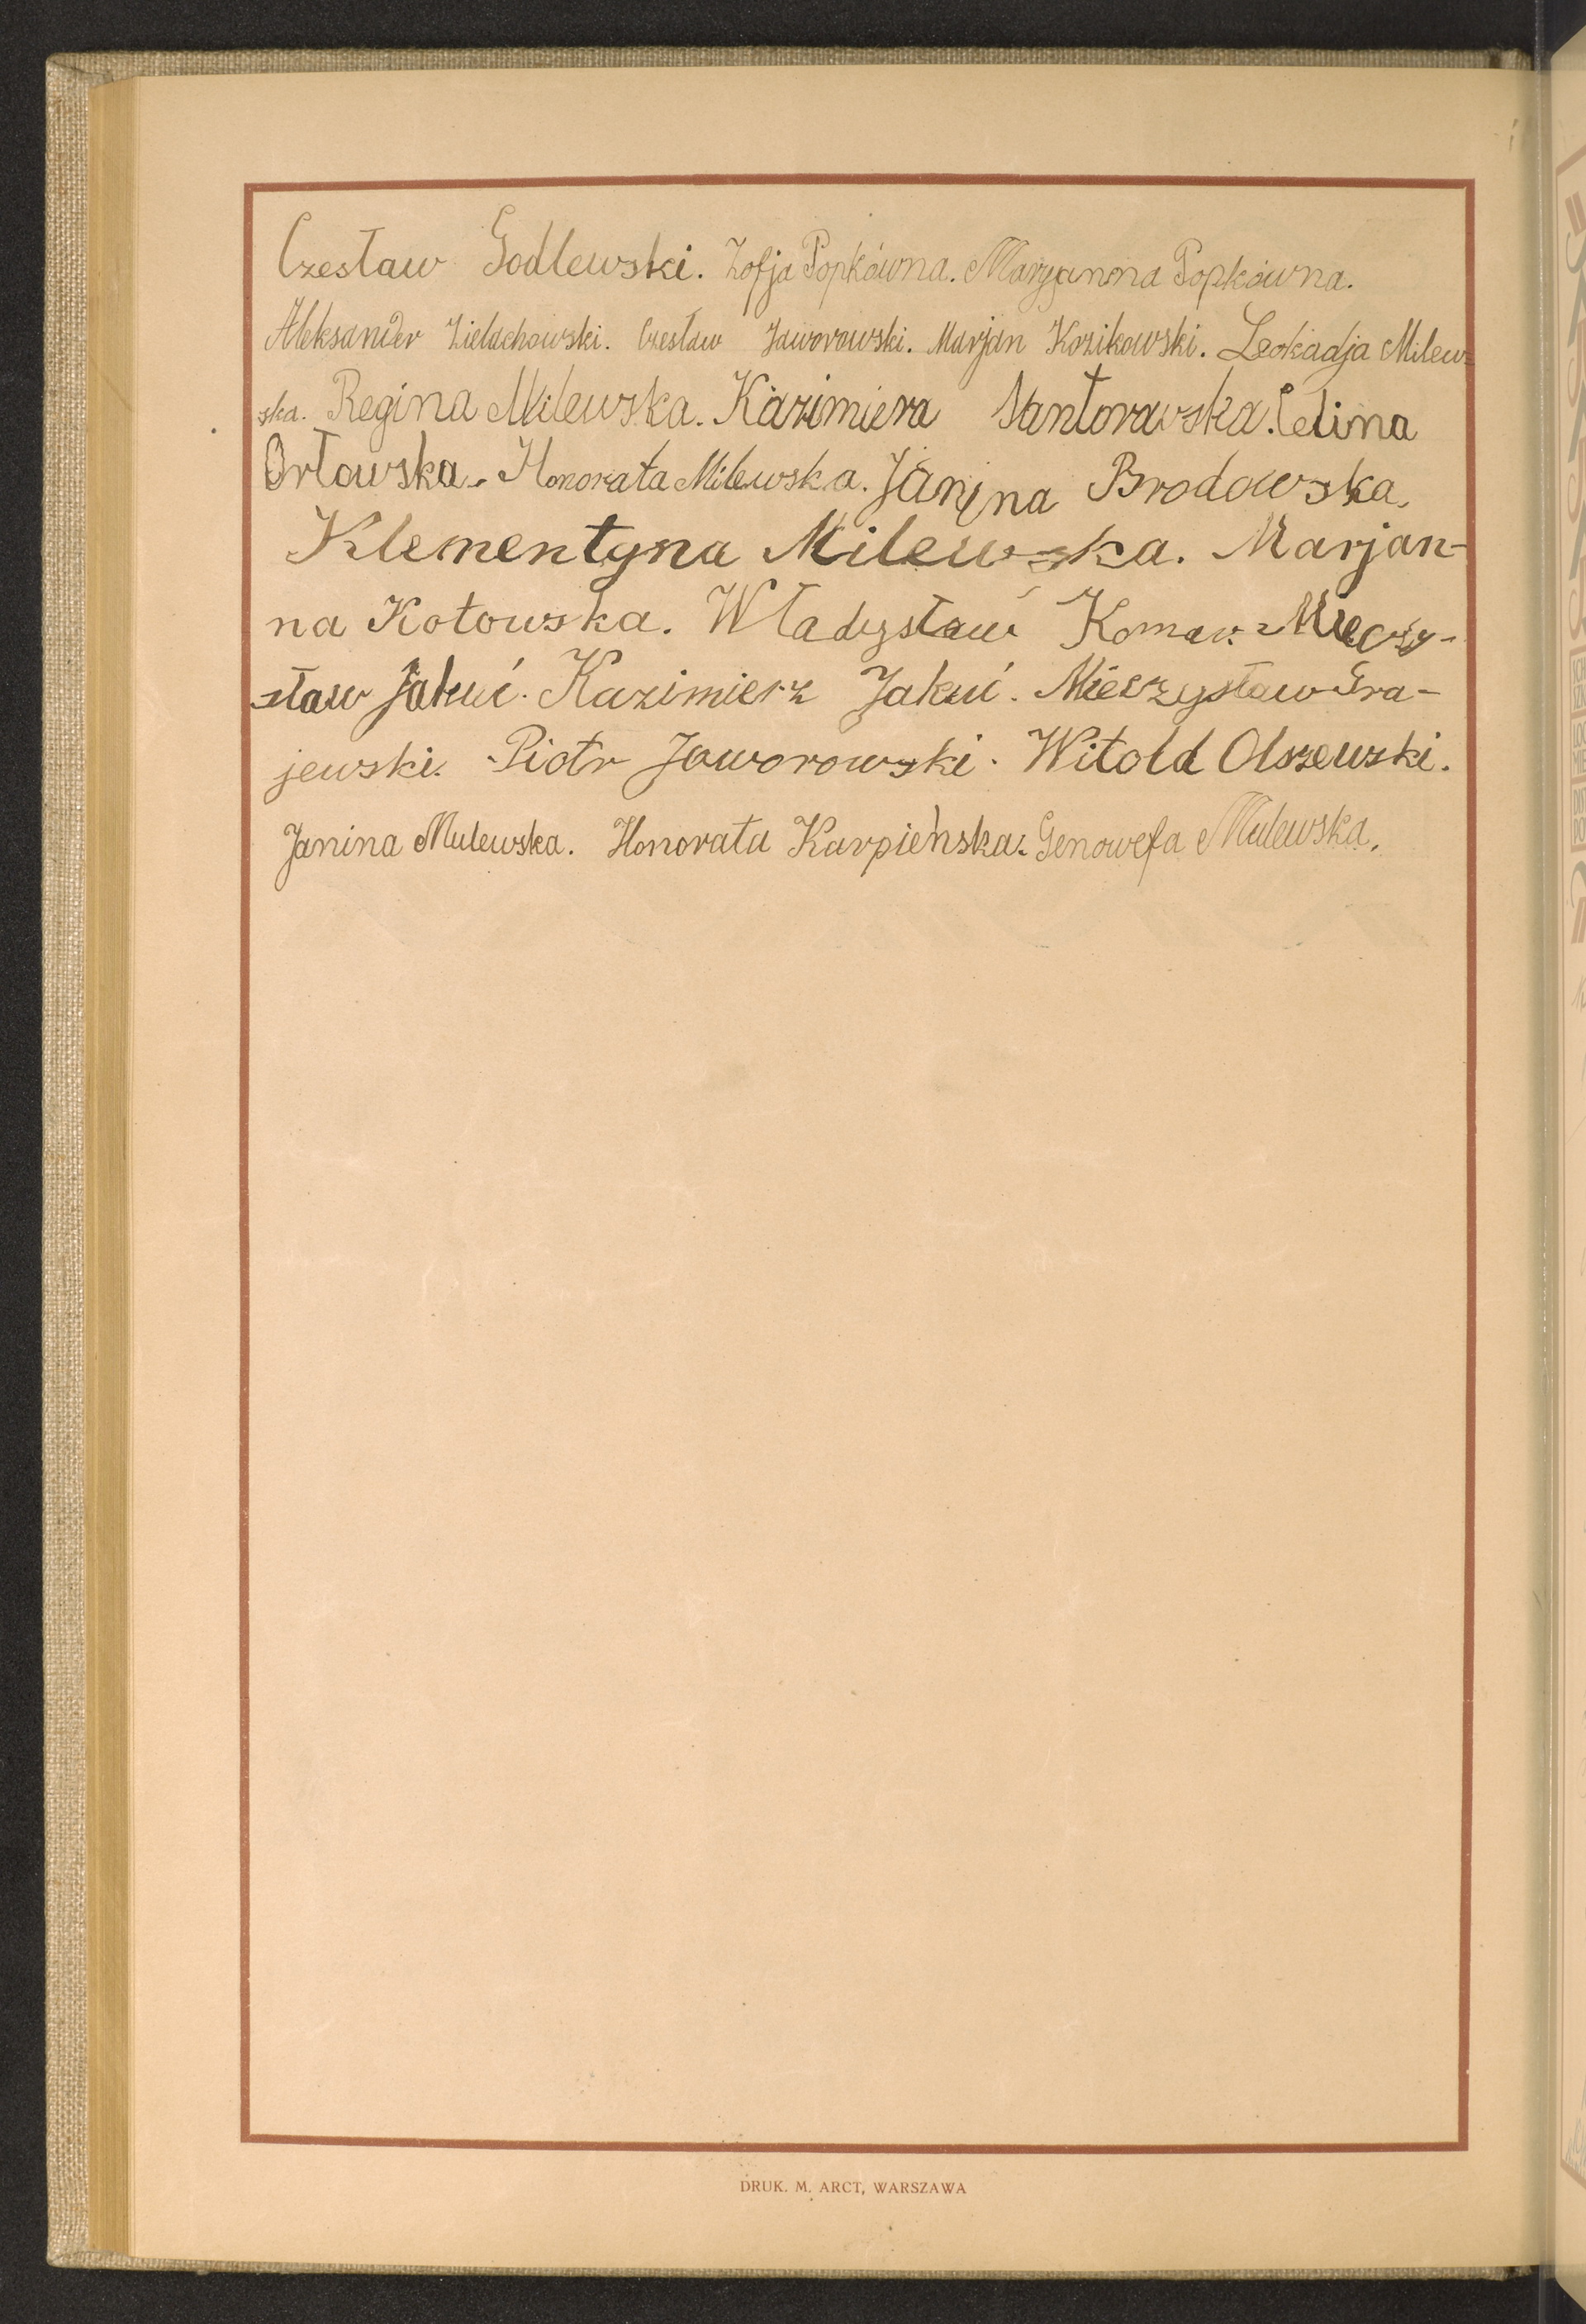 Czesław Godlewski. Zofja Popkówna. Maryanna Popkówna.
Aleksander Zielachowski. Czesław Jaworowski. Marjan Kozikowski. Leokadja Milew-
ska. Regina Milewska. Kazimiera Santorowska. Celina
Orłowska. Honorata Milewska. Janina Brodowska.
Klementyna Milewska. Marjan-
na Kotowska. Władysław Komar. Mieczy-
sław Jakuć. Kazimierz Jakuć. Mieczysław Gra-
jewski. Piotr Jaworowski. Witold Olszewski.
Janina Mulewska. Honorata Karpieńska. Genowefa Mulewska.
DRUK. M. ARCT, WARSZAWA